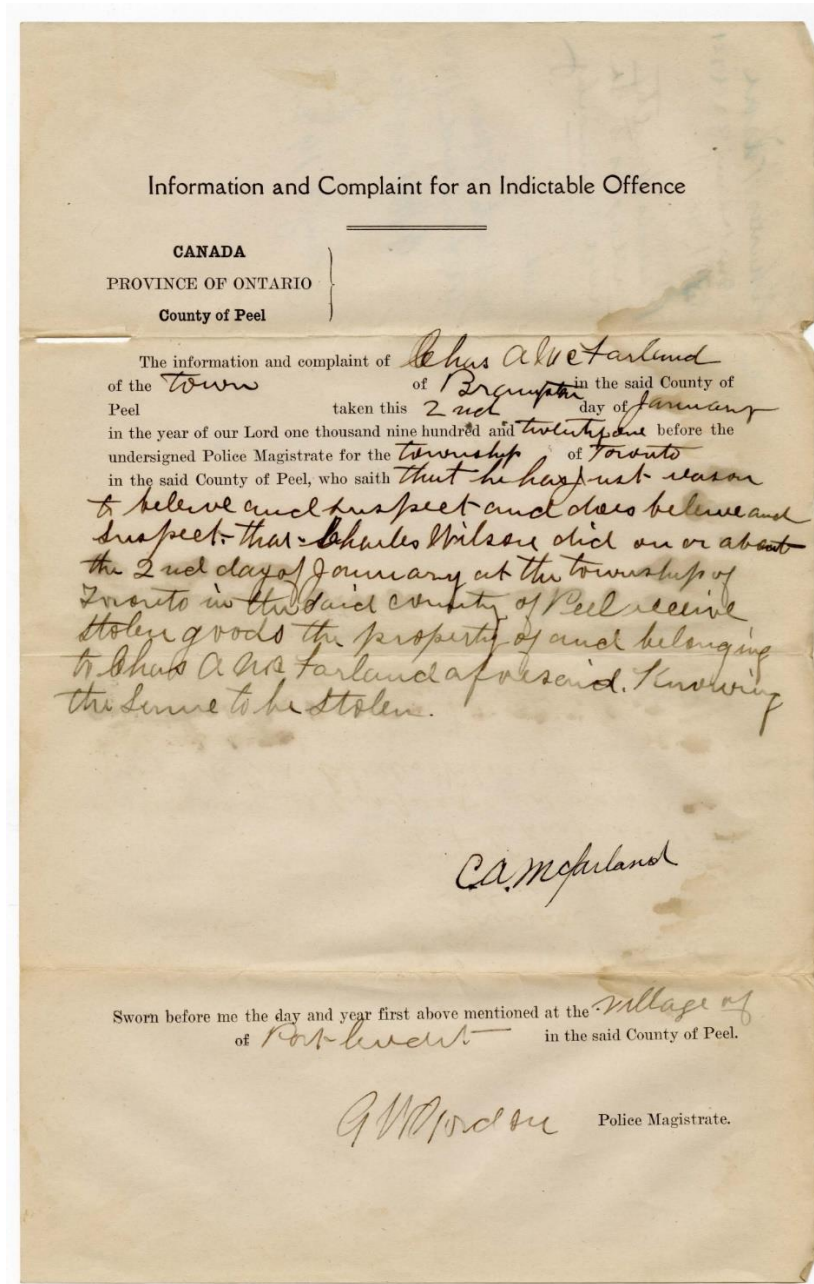 Information and Complaint for an Indictable Offence
CANADA
PROVINCE OF ONTARIO
County of Peel
The information and complaint of Chas A McFarland
of the town of Brampton in the said County of
Peel taken this 2nd day of January
in the year of our Lord one thousand nine hundred and twenty one before the
undersigned Police Magistrate for the township of Toronto
in the said County of Peel, who saith that he has just reason
to beleive and suspect and does beleive and
suspect that Charles Wilson did on or about
the 2nd day of January at the township of
Toronto in the said county of Peel receive
stolen goods the property of and belonging
to Chas A McFarland aforesaid. Knowing
the same to be stolen.
C.A. McFarland
Sworn before me the day and year first above mentioned at the village of
of Port Credit in the said County of Peel.
Gordon Police Magistrate.